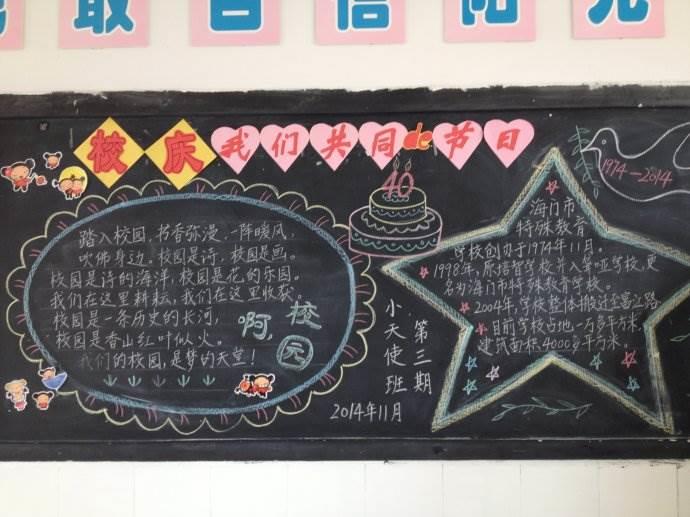 取 自信 阳光
校庆 我们共同de节日
40
1974—2014
踏入校园,书香弥漫,一阵暖风,
吹佛身边,校园是诗,校园是画。
校园是诗的海洋,校园是花的乐园。
我们在这里耕耘,我们在这里收获,
校园是一条历史的长河,
校园是香山红叶似火。
我们的校园,是梦的天堂!
啊,校园
小天使班
第三期
2014年11月
海门市
特殊教育
学校创办于1974年11月。
1998年,原培智学校并入聋哑学校,更
名为海门市特殊教育学校。
2004年,学校整体搬迁至富江路,
目前学校占地一万多平方米,
建筑面积4000多平方米。